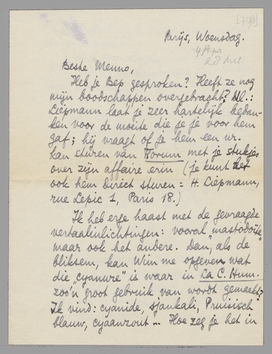 Parijs, Woensdag.
Beste Menno,
Heb je Bep gesproken? Heeft ze nog
mijn boodschappen overgebracht? Nl.:
Liepmann laat je zeer hartelijk bedan-
ken voor de moeite die je je voor hem
gaf; hij vraagt of je hem een nr.
kan sturen van Forum met je stukjes
over zijn affaire erin (je kunt het
ook hem direct sturen = H. Liepmann,
rue Lepic 1, Paris 18.)
Ik heb erge haast met de gevraagde
vertaalinlichtingen: vooral "mastodonte"
maar ook het andere. Dan, als de
bliksem, kan Wim me opgeven wat
die "cyanure" is waar in La C. Hum.
zoo'n groot gebruik van wordt gemaakt?
Ik vind: cyanide, cyankali, Pruisisch
blauw, cyaanzout... Hoe zeg je het in